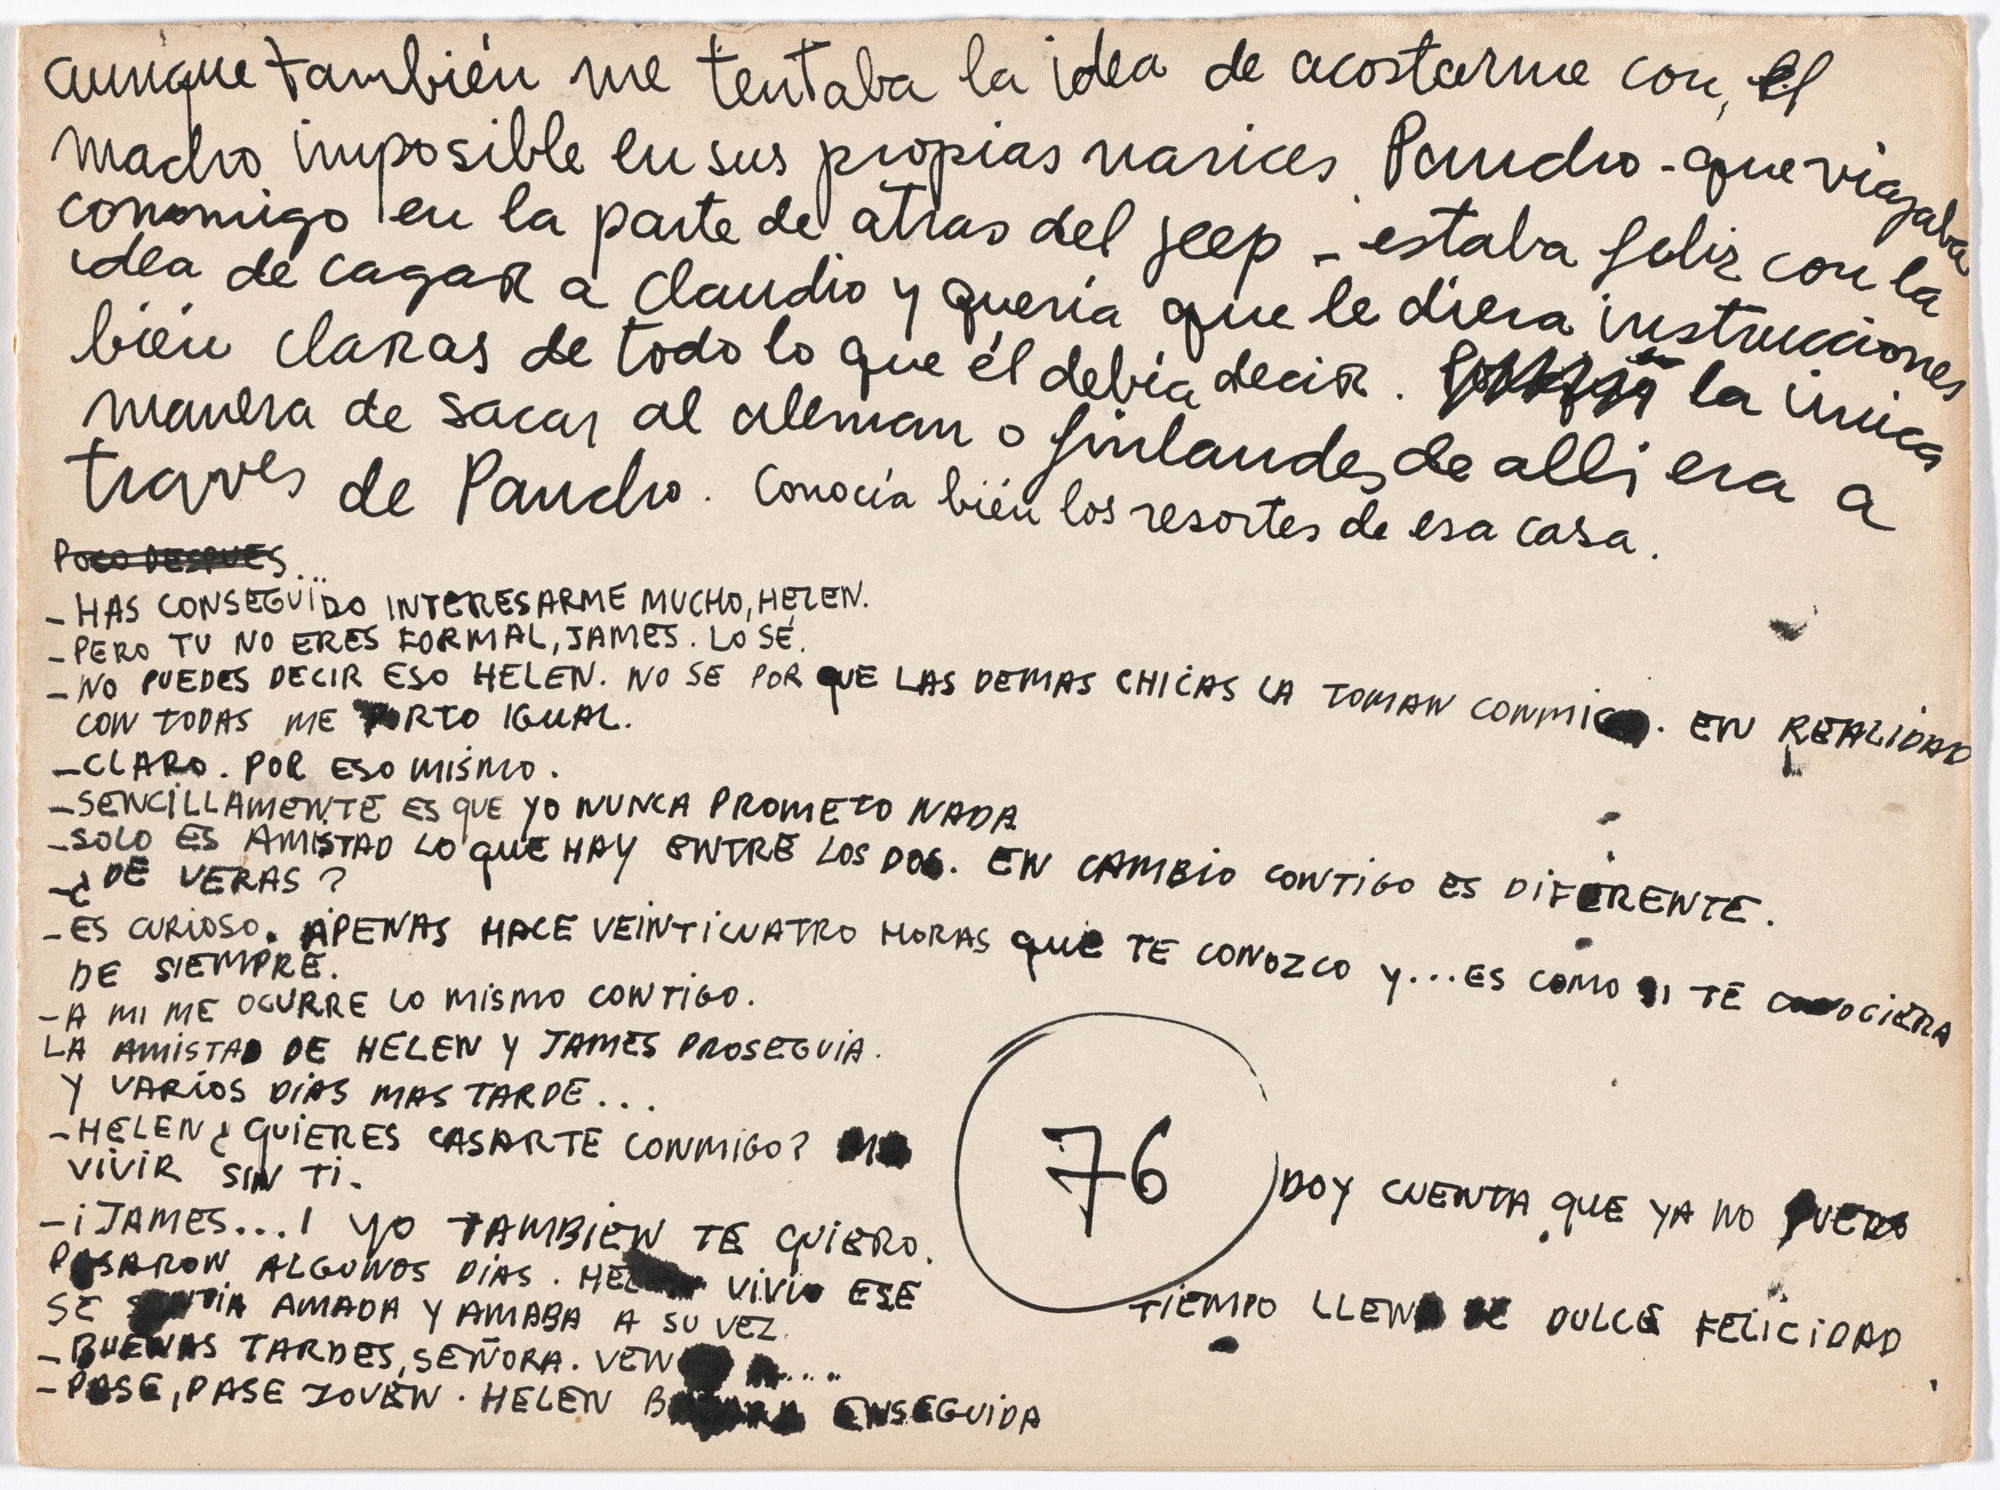 aunque también me tentaba la idea de acostarme con, el
macho imposible en sus propias narices. Pancho - que viajaba
conmigo en la parte de atras del jeep - estaba feliz con la
idea de cagar a Claudio y quería que le diera instrucciones
bién claras de todo lo que él debía decir. la única
manera de sacar al aleman o finlandes de alli era a
traves de Pancho. Conocía bién los resortes de esa casa.
POCO DESPUES...
- HAS CONSEGUIDO INTERESARME MUCHO, HELEN.
- PERO TU NO ERES FORMAL, JAMES. LO SÉ.
- NO PUEDES DECIR ESO HELEN. NO SE POR QUE LAS DEMAS CHICAS LA TOMAN CONMIGO. EN REALIDAD
CON TODAS ME PORTO IGUAL.
- CLARO. POR ESO MISMO.
- SENCILLAMENTE ES QUE YO NUNCA PROMETO NADA
- SOLO ES AMISTAD LO QUE HAY ENTRE LOS DOS. EN CAMBIO CONTIGO ES DIFERENTE.
- ¿DE VERAS?
- ES CURIOSO. APENAS HACE VEINTICUATRO HORAS QUE TE CONOZCO Y... ES COMO SI TE CONOCIERA
DE SIEMPRE.
- A MI ME OCURRE LO MISMO CONTIGO.
LA AMISTAD DE HELEN Y JAMES PROSEGUIA.
Y VARIOS DIAS MAS TARDE...
- HELEN ¿QUIERES CASARTE CONMIGO? ME DOY CUENTA QUE YA NO PUEDO
VIVIR SIN TI.
- ¡JAMES...! YO TAMBIEN TE QUIERO.
PASARON ALGUNOS DIAS. HELEN VIVIO ESE TIEMPO LLENO DE DULCE FELICIDAD
SE SENTIA AMADA Y AMABA A SU VEZ.
- BUENAS TARDES, SEÑORA. VENGO A....
- PASE, PASE JOVEN. HELEN BAJARA ENSEGUIDA
76